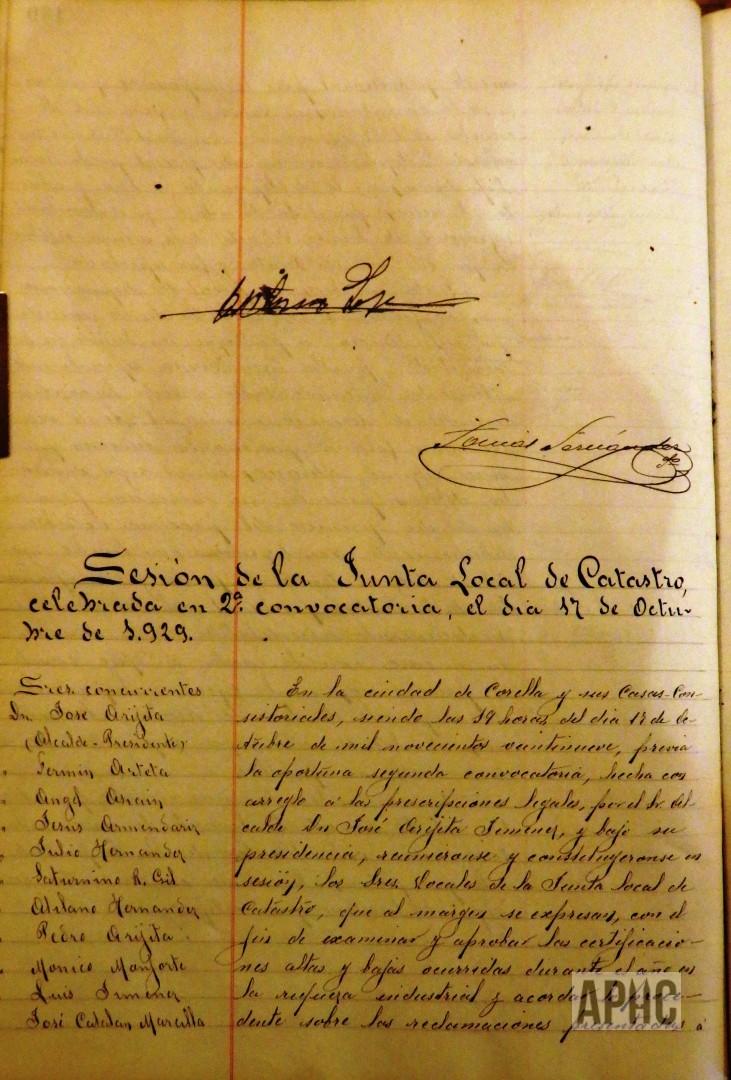 Tomás Fernández
Sesión de la Junta Local de Catastro,
celebrada en 2ª convocatoria, el día 17 de Octu-
bre de 1.929.
Sres. concurrentes
Dn. José Arijita
(Alcalde-Presidente)
" Fermín Arteta
" Angel
" Jesús Armendariz
" Julio Hernandez
" Saturnino R. Gil
" Atilano Hernandez
" Pedro Arijita
" Monico Monforte
" Luis Jimenez
" José Catalan Marcilla
En la ciudad de Corella y sus Casas-Con-
sistoriales, siendo las 19 horas del día 17 de Oc-
tubre de mil novecientos veintinueve, previa
la oportuna segunda convocatoria, hecha con
arreglo á las prescripciones legales, por el Sr. Al-
calde Dn José Arijita Jimenez, y bajo su
presidencia, reunieronse y constituyeronse en
sesión, los Sres. Vocales de la Junta local de
Catastro, que al margen se expresan, con el
fin de examinar y aprobar las certificacio-
nes altas y bajas ocurridas durante el año en
la riqueza industrial y acordar lo proce-
dente sobre las reclamaciones presentadas á
APHC